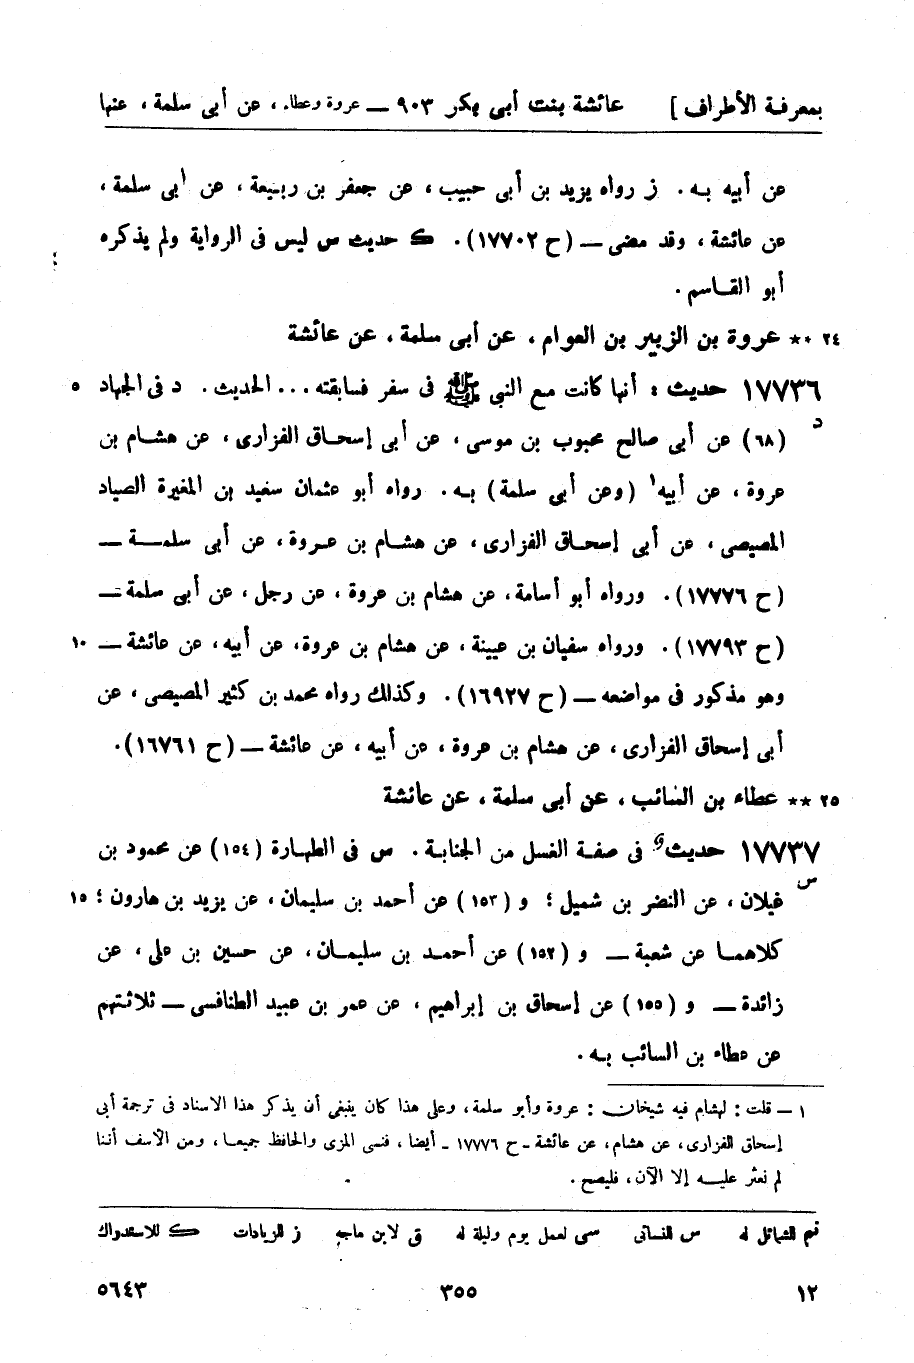 بمعرفة الأطراف ] عائشة بنت أبى بكر ٩٠٣ ــ عروة وعطاء ، عن أبى سلمة ، عنها
عن أبيه بـه . ز رواه يزيد بن أبى حبيب ، عن جعفر بن ربيعة ، عن أبى سلمة ،
عن عائشة ، وقد مضى ــ (ح ١٧٧٠٢) . ك حديث س ليس فى الرواية ولم يذكره
أبو القـاسم .
٢٤ ** عروة بن الزبير بن العوام ، عن أبى سلمة ، عن عائشة
١٧٧٣٦ حديث : أنها كانت مع النبى ﷺ فى سفر فسابقته ... الحديث . د فى الجهاد ٥
د (٦٨) عن أبى صالح محبوب بن موسى ، عن أبى إسحـاق الفزارى ، عن هشـام بن
عروة ، عن أبيه ١ (وعن أبى سلمة) بـه . رواه أبو عثمان سعيد بن المغيرة الصياد
المصيصى ، عن أبى إسحـاق الفزارى ، عن هشـام بن عـروة ، عن أبى سلمـــة ــ
(ح ١٧٧٧٦) . ورواه أبو أسامة ، عن هشام بن عروة ، عن رجل ، عن أبى سلمة ــ
(ح ١٧٧٩٣) . ورواه سفيان بن عيينة ، عن هشام بن عروة ، عن أبيه ، عن عائشة ــ ١٠
وهو مذكور فى مواضعه ــ (ح ١٦٩٢٧) . وكذلك رواه محمد بن كثير المصيصى ، عن
أبى إسحاق الفزارى ، عن هشام بن عروة ، عن أبيه ، عن عائشة ــ (ح ١٦٧٦١) .
٢٥ ** عطاء بن السائب ، عن أبى سلمة ، عن عائشة
١٧٧٣٧ حديث فى صفـة الغسل من الجنابـة . س فى الطهـارة (١٥٤) عن محمود بن
س غيلان ، عن النضر بن شميل ؛ و (١٥٣) عن أحمد بن سليمان ، عن يزيد بن هارون ؛ ١٥
كلاهمـا عن شعبة ــ و (١٥٢) عن أحمـد بن سليمـان ، عن حسين بن على ، عن
زائدة ــ و (١٥٥) عن إسحاق بن إبراهيم ، عن عمر بن عبيد الطنافسى ــ ثلاثتهم
عن عطاء بن السائب بـه .
١ ــ قلت : لهشام فيه شيخان : عروة وأبو سلمة ، وعلى هذا كان ينبغى أن يذكر هذا الاسناد فى ترجمة أبى
إسحاق الفزارى ، عن هشام ، عن عائشة ـ ح ١٧٧٧٦ ـ أيضا ، فنسى المزى والحافظ جميعـا ، ومن الأسف أننا
لم نعثر عليـه إلا الآن ، فليصح .
تم للشمائل له س للنسائى سى لعمل يوم وليلة له ق لابن ماجه ز للزيادات ك للاستدراك
١٢ ٣٥٥ ٥٦٤٣